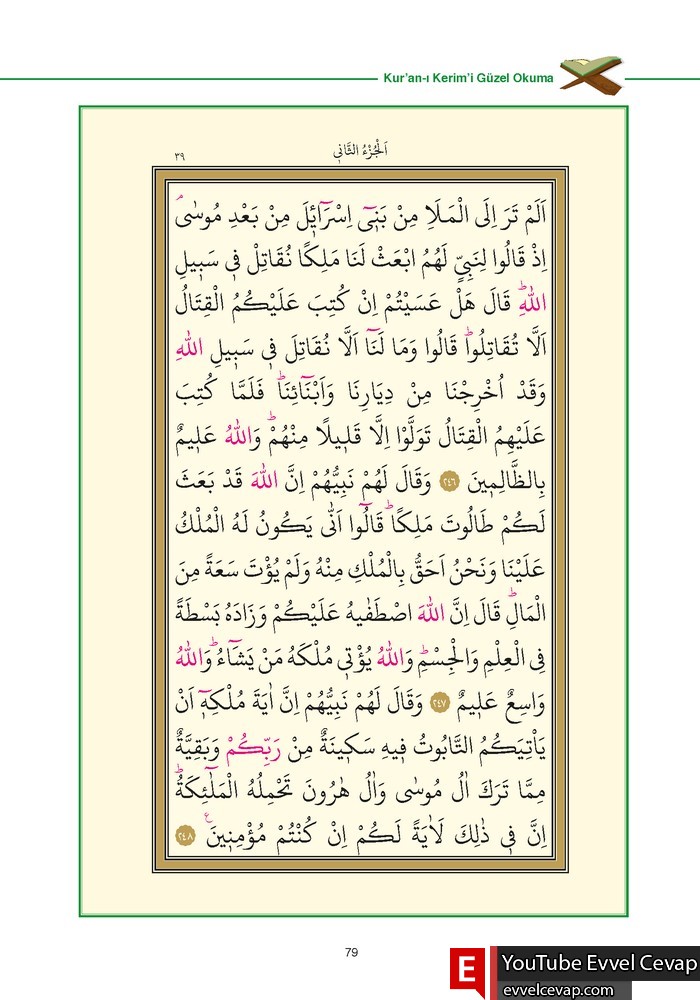 Kur’an-ı Kerim’i Güzel Okuma
اَلْجُزْءُ الثَّانٖي
٣٩
اَلَمْ تَرَ اِلَى الْمَلَاِ مِنْ بَنٖٓي اِسْرَٓائٖلَ مِنْ بَعْدِ مُوسٰىۢ
اِذْ قَالُوا لِنَبِيٍّ لَهُمُ ابْعَثْ لَنَا مَلِكًا نُقَاتِلْ فٖي سَبٖيلِ
اللّٰهِؕ قَالَ هَلْ عَسَيْتُمْ اِنْ كُتِبَ عَلَيْكُمُ الْقِتَالُ
اَلَّا تُقَاتِلُواؕ قَالُوا وَمَا لَنَٓا اَلَّا نُقَاتِلَ فٖي سَبٖيلِ اللّٰهِ
وَقَدْ اُخْرِجْنَا مِنْ دِيَارِنَا وَاَبْنَٓائِنَاؕ فَلَمَّا كُتِبَ
عَلَيْهِمُ الْقِتَالُ تَوَلَّوْا اِلَّا قَلٖيلًا مِنْهُمْؕ وَاللّٰهُ عَلٖيمٌ
بِالظَّالِمٖينَ ﴿٢٤٦﴾ وَقَالَ لَهُمْ نَبِيُّهُمْ اِنَّ اللّٰهَ قَدْ بَعَثَ
لَكُمْ طَالُوتَ مَلِكًاؕ قَالُٓوا اَنّٰى يَكُونُ لَهُ الْمُلْكُ
عَلَيْنَا وَنَحْنُ اَحَقُّ بِالْمُلْكِ مِنْهُ وَلَمْ يُؤْتَ سَعَةً مِنَ
الْمَالِؕ قَالَ اِنَّ اللّٰهَ اصْطَفٰيهُ عَلَيْكُمْ وَزَادَهُ بَسْطَةً
فِي الْعِلْمِ وَالْجِسْمِؕ وَاللّٰهُ يُؤْتٖي مُلْكَهُ مَنْ يَشَٓاءُؕ وَاللّٰهُ
وَاسِعٌ عَلٖيمٌ ﴿٢٤٧﴾ وَقَالَ لَهُمْ نَبِيُّهُمْ اِنَّ اٰيَةَ مُلْكِهٖٓ اَنْ
يَأْتِيَكُمُ التَّابُوتُ فٖيهِ سَكٖينَةٌ مِنْ رَبِّكُمْ وَبَقِيَّةٌ
مِمَّا تَرَكَ اٰلُ مُوسٰى وَاٰلُ هٰرُونَ تَحْمِلُهُ الْمَلٰٓئِكَةُؕ
اِنَّ فٖي ذٰلِكَ لَاٰيَةً لَكُمْ اِنْ كُنْتُمْ مُؤْمِنٖينَ ع ﴿٢٤٨﴾
79
E YouTube Evvel Cevap
evvelcevap.com